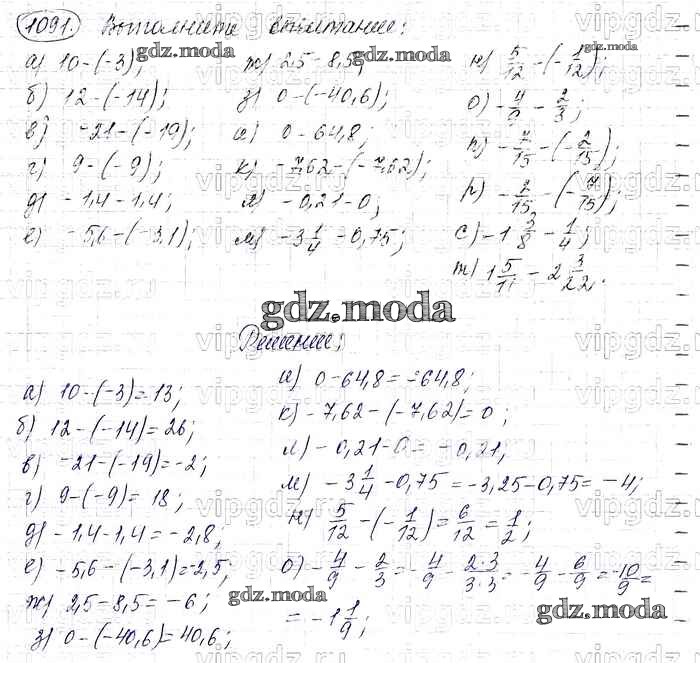 1091. Выполните вычитание:
а) 10-(-3); ж) 2,5-8,5; н) 5/12-(-1/12);
б) 12-(-14); з) 0-(-40,6); о) -4/9-2/3;
в) -21-(-19); и) 0-64,8; п) -7/15-(-2/15);
г) 9-(-9); к) -7,62-(-7,62); р) -2/15-(-7/15);
д) -1,4-1,4; л) -0,21-0; с) -1 3/8-1/4;
е) -5,6-(-3,1); м) -3 1/4-0,75; т) 1 5/11-2 3/22.
gdz.moda
Решение:
а) 10-(-3)=13;
б) 12-(-14)=26;
в) -21-(-19)=-2;
г) 9-(-9)=18;
д) -1,4-1,4=-2,8;
е) -5,6-(-3,1)=-2,5;
ж) 2,5-8,5=-6;
з) 0-(-40,6)=40,6;
и) 0-64,8=-64,8;
к) -7,62-(-7,62)=0;
л) -0,21-0=-0,21;
м) -3 1/4-0,75=-3,25-0,75=-4;
н) 5/12-(-1/12)=6/12=1/2;
о) -4/9-2/3=-4/9-2·3/3·3=-4/9-6/9=-10/9=
=-1 1/9;